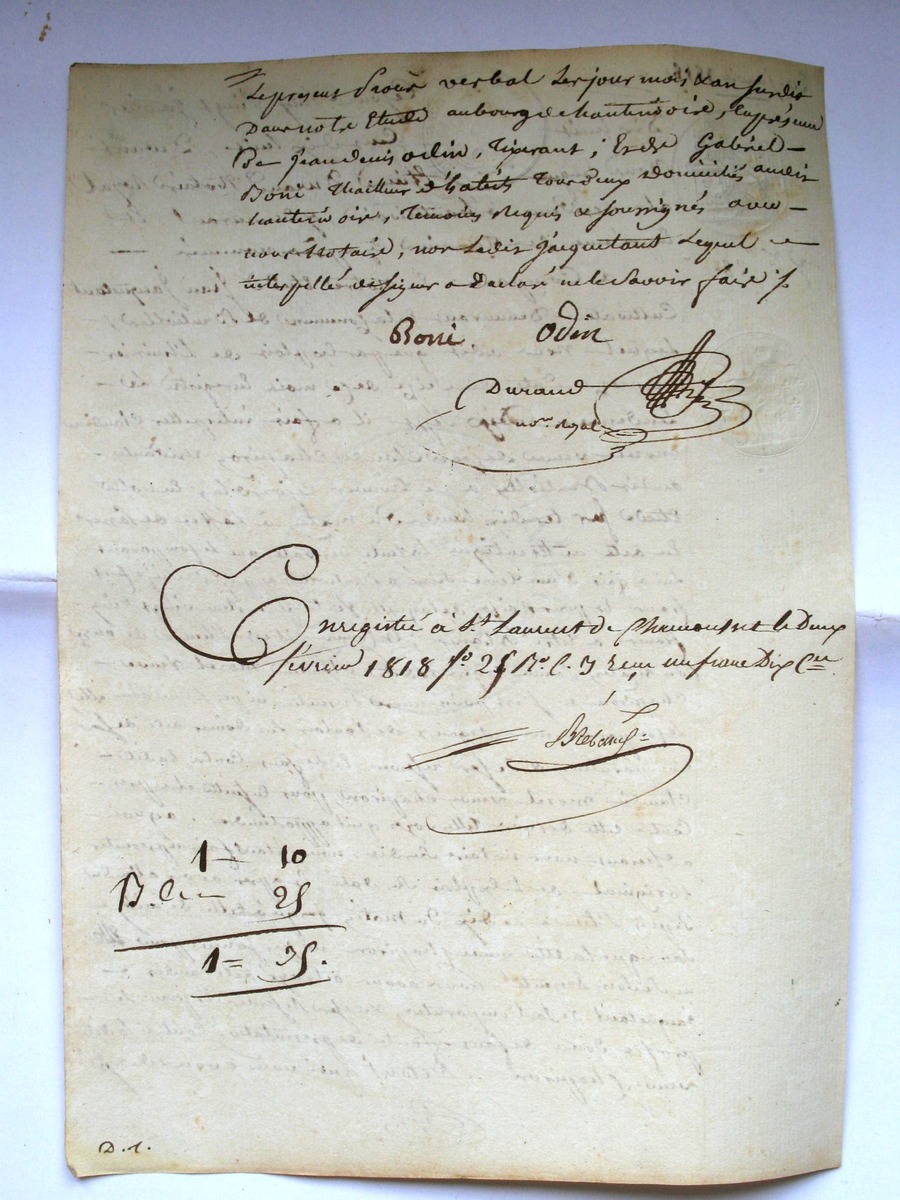 Le present Procès verbal Les jour mois & an susdits
Dans notre Etude au bourg de chantenoire, En présence
De Jean denis odin, Tisserant, Et de Gabriel
Boni Thailleur d'habits Tous deux domiciliés audit
chantenoire, Temoins Requis & soussignés avec
nous Notaire, non Ledit Jacquetant Lequel
interpellé de signer a Declaré ne le Savoir faire
Boni Odin
Durand
nore. Royal
Enregistré à St. Laurent de Chamousset le Deux
février 1818 fo. 25 Ro. C. 3 Reçu un franc Dix Cen
1 = 10
D. Cen 25
1 = 35.
D. 1.